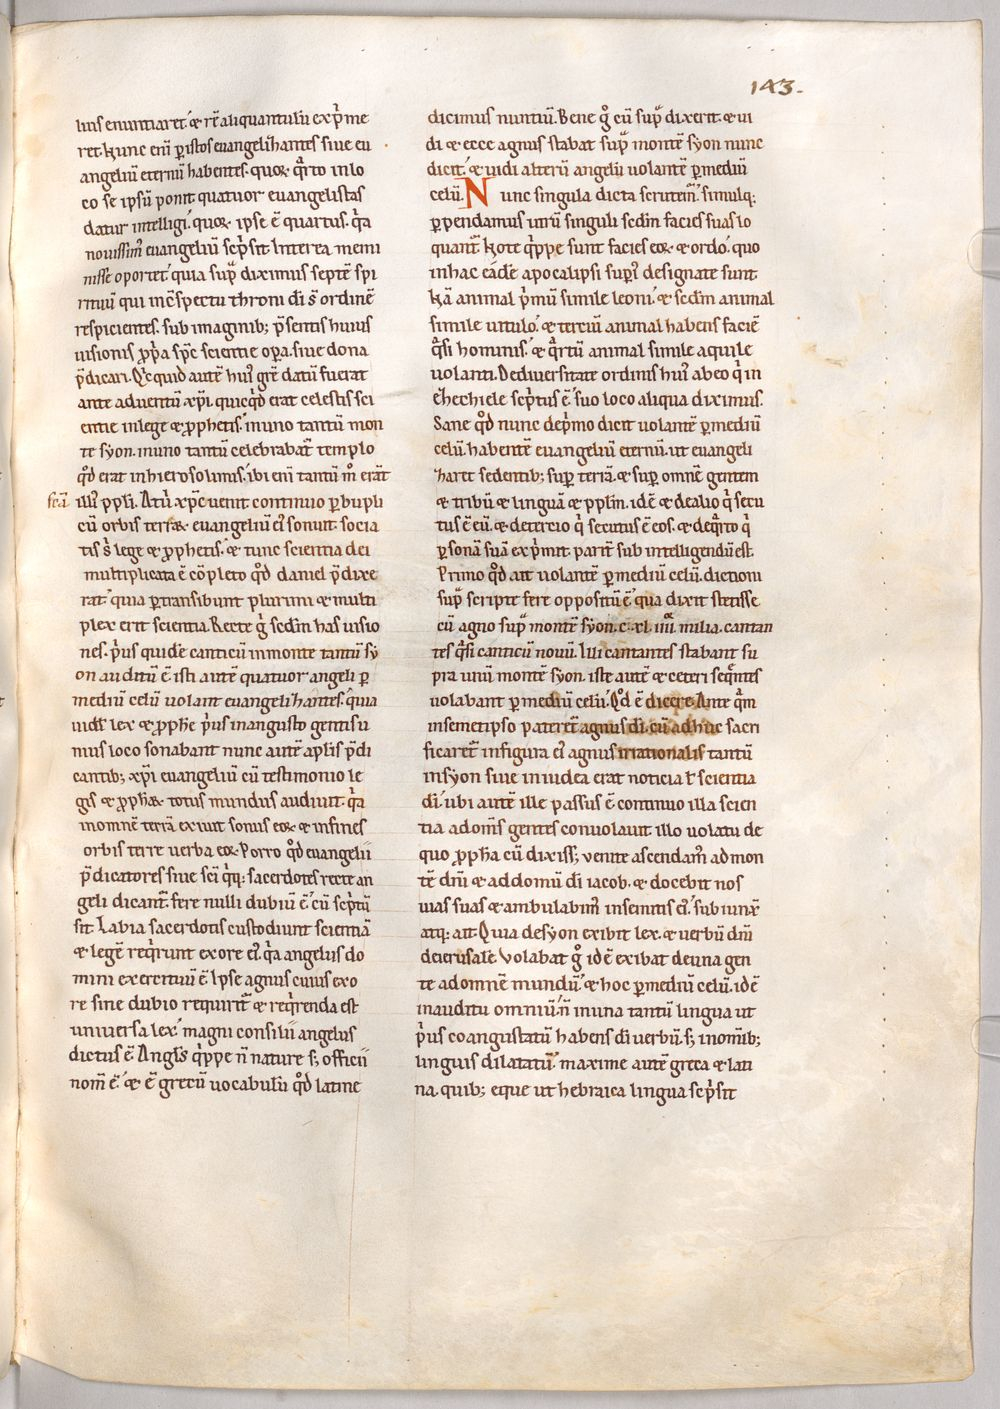 143.
lius enuntiaret. & rē aliquantulū exp̄me
ret. Nunc enī p istos euangelizantes siue eu
angeliū eternū habentes. quoꝝ q̄rto in lo
co se ipsū ponit quatuor euangelistas
datur intelligi. quoꝝ ipse ē quartus. q̄a
nouissim' euangeliū sc̄psit. Interea memi
nisse oportet. quia sup̄ diximus septē spi
rituū qui in ɔspectu throni dī s̄t ordinē
respicientes. sub imaginib; p̄sentis huius
uisionis p̄p̄a sp̄c scientie opa. siue dona
p̄dicari. Q̄cquid autē hui' gr̄e datū fuerat
ante aduentū xp̄i. quicq̄d erat celestis sci
entie in lege & p̄phetis. in uno tantū mon
te syon. in uno tantū celebrabat' templo
q̄d erat in hierosolimis. ibi enī tantū m̊ erat
sc̄ā illi' pp̄li. At ū xp̄c uenit continuo p bu pu li
cū orbis terrae. euangeliū ei' sonuit. socia
tis s' lege & p̄phetis. & tunc scientia dei
multiplicata ē cōpleto q̄d daniel p̄dixe
rat. quia ptransibunt plurimi & multi
plex erit scientia. Recte g̊ sedm has uisio
nes. p̄us quidē canticū in monte tantū sy
on auditū ē isti autē quatuor angeli p
mediū celū uolant euangelizantes. quia
uidl' lex & p̄phe p̄us in angusto gentis u
nius loco sonabant nunc autē ap̄lis p̄di
cantib; xp̄i euangeliū cū testimonio le
gis & p̄phaꝝ totus mundus audiuit. q̄a
in omnē terrā exiuit sonus eoꝝ & in fines
orbis terre uerba eoꝝ. Porro q̄d euangelii
p̄dicatores siue sc̄i q̄q; sacerdotes recte an
geli dicant'. fere nulli dubiū ē. cū sc̄ptū
sit. Labia sacerdotis custodiunt scientiā
& legē req̄runt ex ore ei'. q̄a angelus do
mini exercituū ē. Ipse agnus cuius ex o
re sine dubio requirit' & req̄renda est
uniuersa lex. magni consilii angelus
dictus ē. Angl's q̄ppe n̄ nature s; officii
nom̄ ē. & ē grecū uocabulū q̄d latine
dicimus nuntiū. Bene g̊ cū sup̄ dixerit. & ui
di & ecce agnus stabat sup̄ montē syon nunc
dicit. & uidi alterū angelū uolantē p mediū
celū. Nunc singula dicta scrutem'. simulq;
ppendamus utrū singuli sedm facies suas lo
quant'. Note q̄ppe sunt facies eoꝝ & ordo. quo
in hac eadē apocalipsi sup̄i' designate sunt
Nā animal p̄mū simile leoni. & sedm animal
simile uitulo. & terciū animal habens faciē
q̄si hominis. & q̄rtū animal simile aquile
uolanti. De diuersitate ordinis hui' ab eo q̄ in
ezechiele sc̄ptus ē. suo loco aliqua diximus.
Sane q̄d nunc de p̄mo dicit uolantē p mediū
celū. habentē euangeliū eternū. ut euangeli
zaret sedentib; sup̄ terrā. & sup̄ omnē gentem
& tribū & linguā & pp̄lm. idē & de alio q̄ secu
tus ē eū. & de tercio q̄ secutus ē eos. & de q̄rto q̄
psonā suā exp̄mit. parit' sub intelligendū est.
Primo q̄d ait uolantē p mediū celū. dictioni
sup̄ scripte fere oppositū ē. qua dixit stetisse
cū agno sup̄ montē syon. c. xl. iiii. milia. cantan
tes q̄si canticū nouū. Illi cantantes stabant su
pra unū montē syon. iste autē & ceteri seq̄ntes
uolabant p mediū celū. Q̄d ē dicere. Ante q̄m
in semetipso pateret' agnus dī. cū adhuc sacri
ficaret' in figura ei' agnus irrationalis tantū
in syon siue in iudea erat noticia ł scientia
dī. ubi autē ille passus ē continuo illa scien
tia ad om̄s gentes conuolauit illo uolatu de
quo p̄pha cū dixiss; uenite ascendam' ad mon
tē dn̄i & ad domū dī iacob. & docebit nos
uias suas & ambulabim' in semitis ei'. sub iunx'
atq; ait. Quia de syon exibit lex. & uerbū dn̄i
de ierusalē. Volabat g̊ idē exibat de una gen
te ad omnē mundū. & hoc p mediū celū. idē
in auditu omniū. n̄ in una tantū lingua ut
p̄us coangustatū habens dī uerbū. s; in om̄ib;
linguis dilatatū. maxime autē greca & lati
na. quib; eque ut hebraica lingua sc̄psit